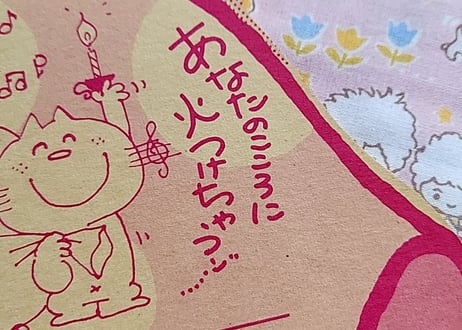 あなたのこころに
火つけちゃうゾ……